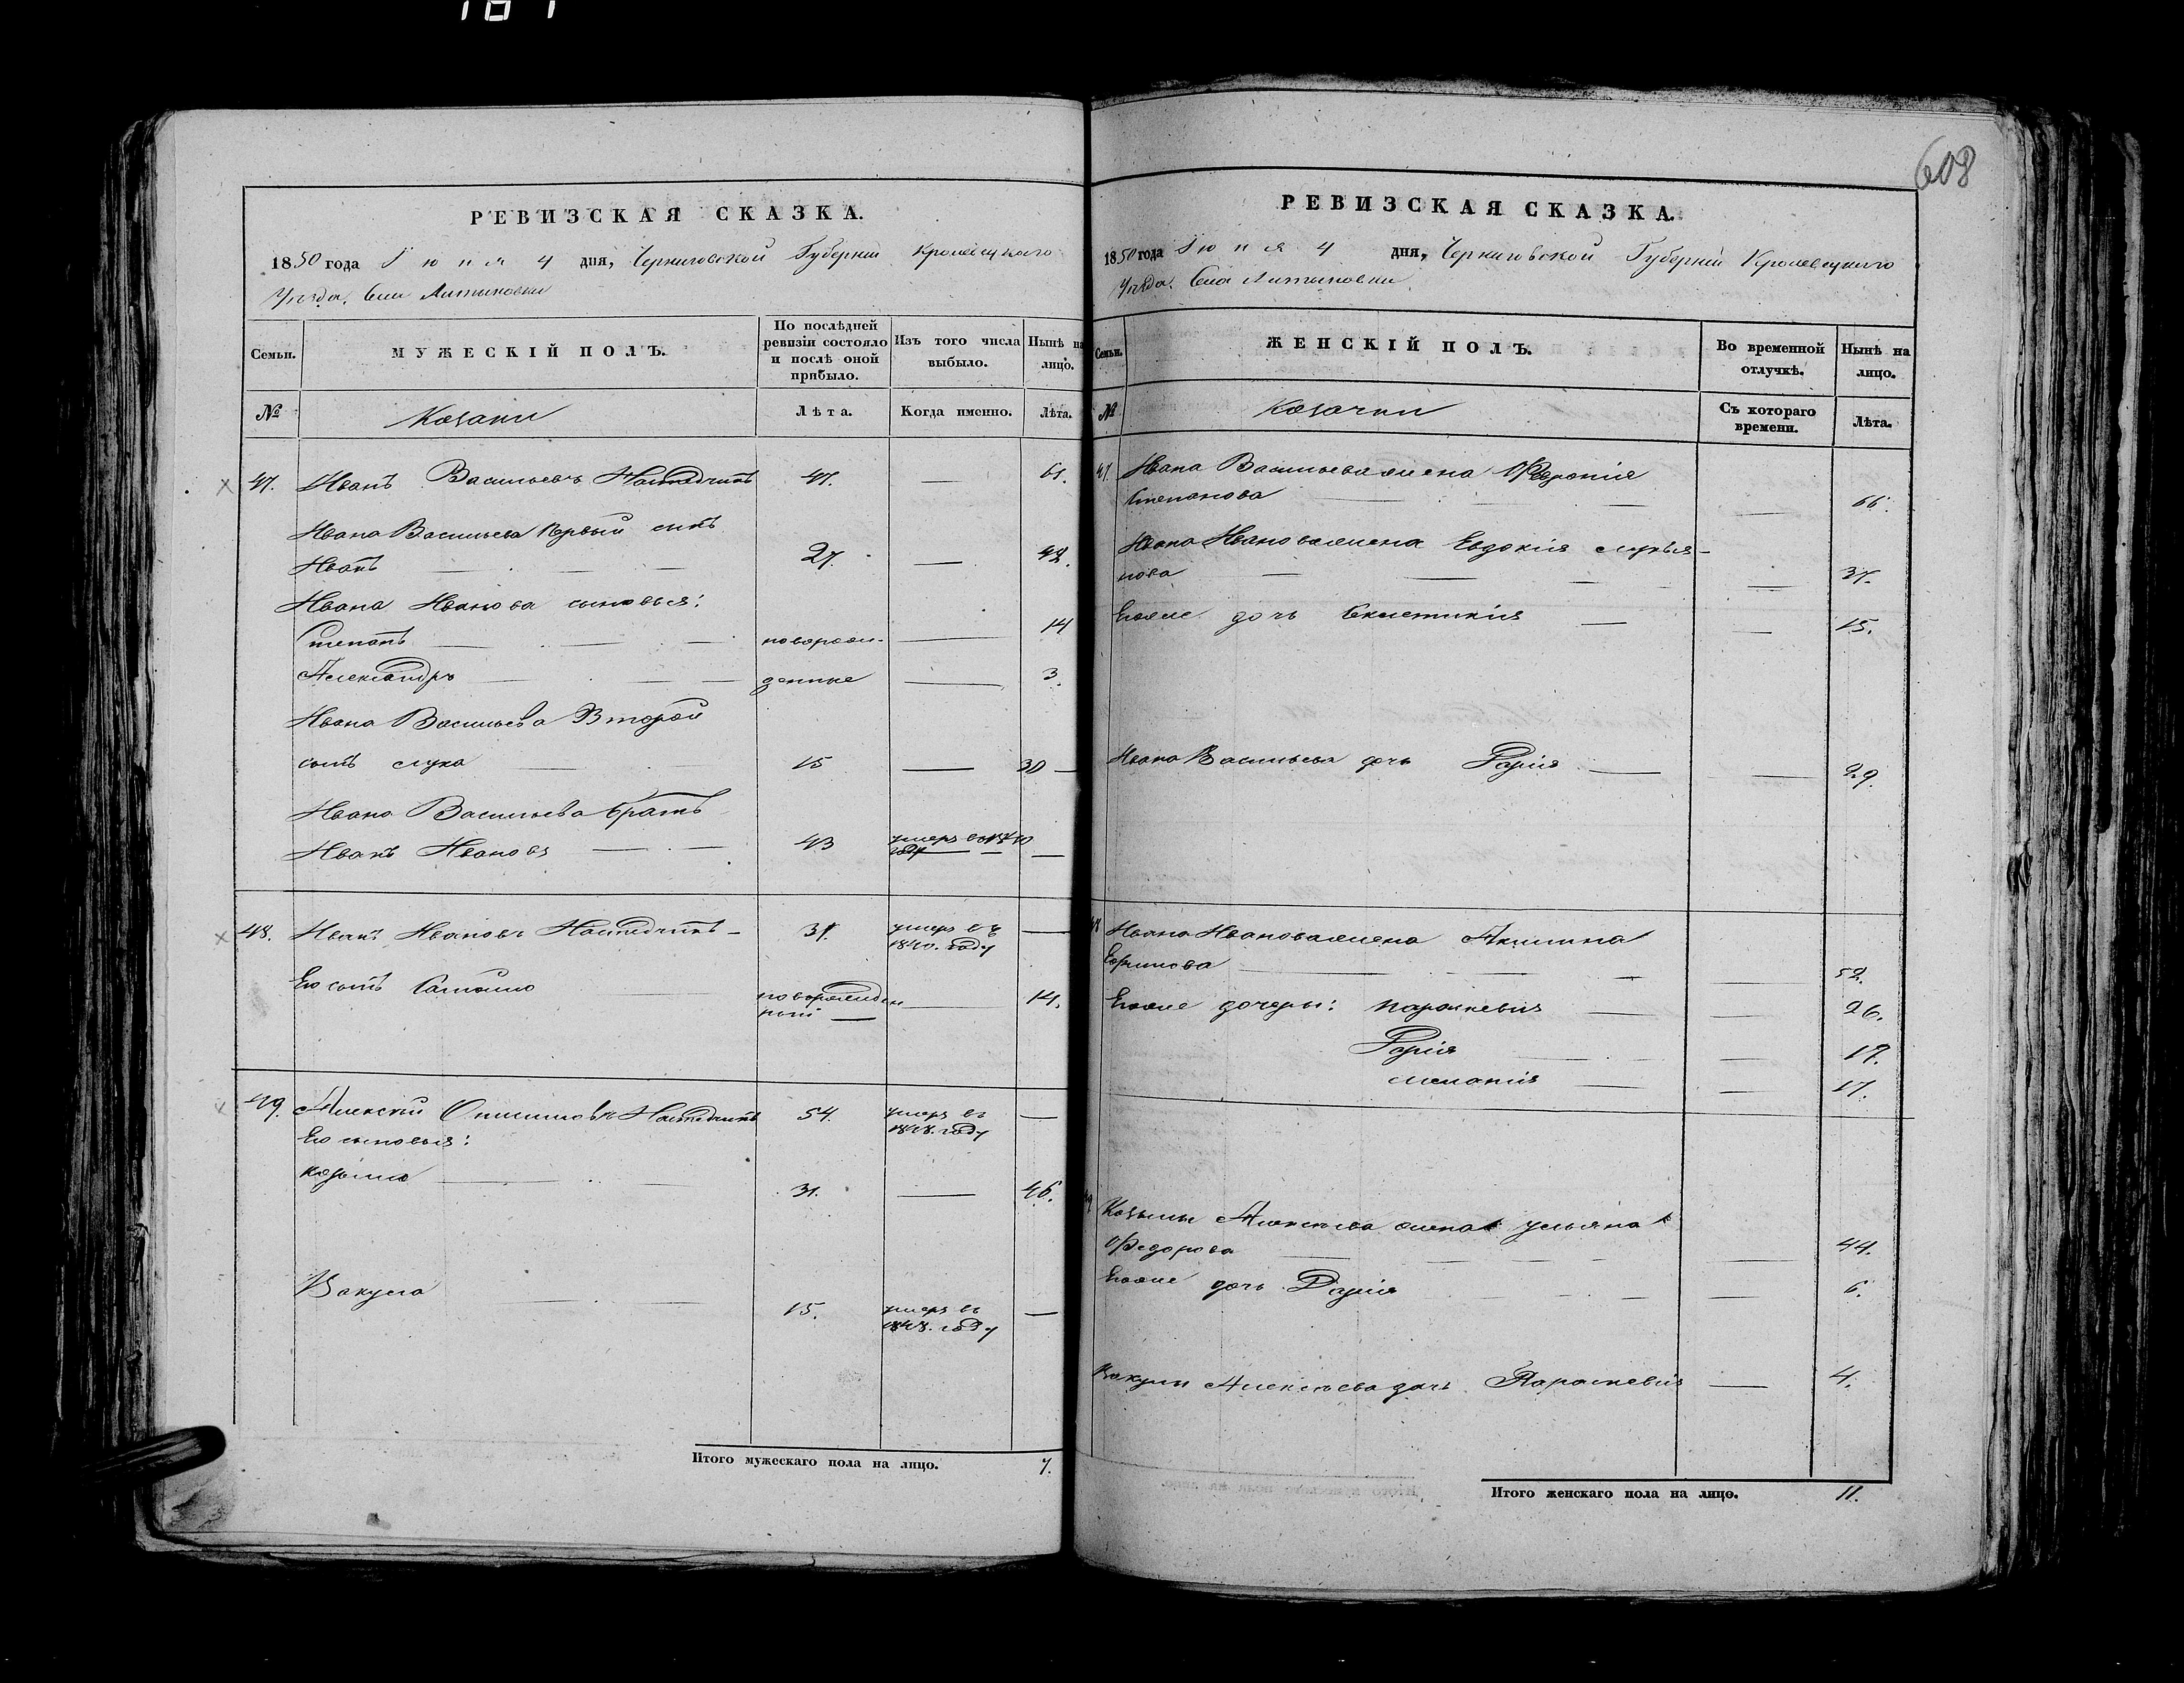 608
РЕВИЗСКАЯ СКАЗКА.
1850 года Іюня 4 дня, Черниговской Губерніи Кролевецкаго
Уѣзда. Села
Семьи.
МУЖЕСКІЙ ПОЛЪ.
По послѣдней ревизіи состояло и послѣ оной прибыло.
Изъ того числа выбыло.
Нынѣ на лицо.
№
Козаки
Лѣта.
Когда именно.
Лѣта.
47. Иванъ Васильевъ 47. — 61.
Ивана Васильева первый сынъ
Иванъ 27. — 42.
Ивана Иванова сыновья:
Степанъ новорож- — 14
Александръ денные — 3.
Ивана Васильева Второй
сынъ Лука 15 — 30 —
Ивана Васильева братъ
Иванъ Ивановъ 43 умеръ въ 1840 году —
48. Иванъ Ивановъ 37. умеръ въ 1840. году —
Его сынъ Самойло новорожден ный — 14.
49. Алексѣй 54. умеръ въ 1848. году —
Его сыновья:
Козьма 31. — 46.
Вакула 15. умеръ въ 1848. году —
Итого мужескаго пола на лицо. 7.
РЕВИЗСКАЯ СКАЗКА.
1850 года Іюня 4 дня, Черниговской Губерніи Кролевецкаго
Уѣзда. Села
Семьи.
ЖЕНСКІЙ ПОЛЪ.
Во временной отлучкѣ.
Нынѣ на лицо.
№
Козачки
Съ котораго времени.
Лѣта.
47. Ивана Васильева жена
Степанова — 66.
Ивана Иванова жена Евдокія Лукья-
нова — 37.
Егоже дочь — 15.
Ивана Васильева дочь Дарія — 29.
48 Ивана Иванова жена Акилина
Ефимова 52.
Егоже дочери: Параскевія — 26.
Дарія — 19.
Меланія — 17.
49 Козьмы Алексѣева жена Ульяна
Федорова — 44.
Егоже дочь Дарія — 6.
Вакулы Алексѣева дочь Параскевія — 4.
Итого женскаго пола на лицо. 11.